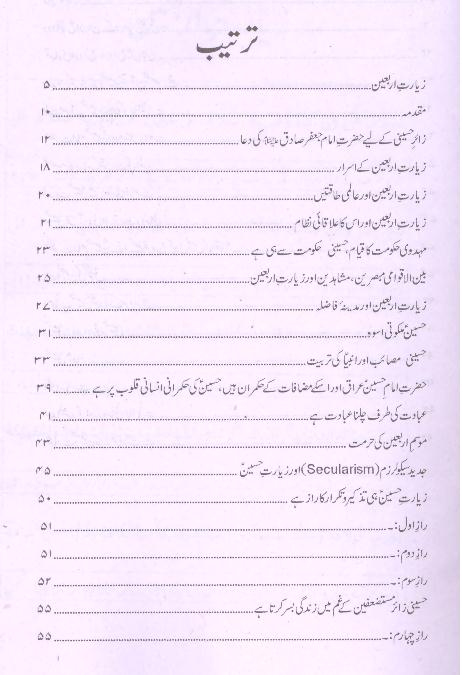 ترتیب
زیارتِ اربعین ۵
مقدمہ ۱۰
زائرِ حسینی کے لیے حضرت امام جعفر صادق علیہ السلام کی دعا ۱۲
زیارتِ اربعین کے اسرار ۱۸
زیارتِ اربعین اور عالمی طاقتیں ۲۰
زیارتِ اربعین اور اس کا علاقائی نظام ۲۱
مہدوی حکومت کا قیام، حسینی حکومت سے ہی ہے ۲۳
بین الاقوامی مبصرین، مشاہدین اور زیارتِ اربعین ۲۵
زیارتِ اربعین اور مدینۂ فاضلہ ۲۷
حسینؑ ملکوتی اسوہ ۳۱
حسینی مصائب اور انبیاؑ کی تربیت ۳۳
حضرت امام حسینؑ عراق اور اسکے مضافات کے حکمران ہیں، حسینؑ کی حکمرانی انسانی قلوب پر ہے ۳۹
عبادت کی طرف چلنا عبادت ہے ۴۱
موسمِ اربعین کی حرمت ۴۳
جدید سیکولرزم (Secularism) اور زیارتِ حسینؑ ۴۵
زیارتِ حسینؑ ہی تذکیر و تکرار کا راز ہے ۵۰
رازِ اول:۔ ۵۱
رازِ دوم:۔ ۵۱
رازِ سوم:۔ ۵۲
حسینی زائر مستضعفین کے غم میں زندگی بسر کرتا ہے ۵۵
رازِ چہارم:۔ ۵۵